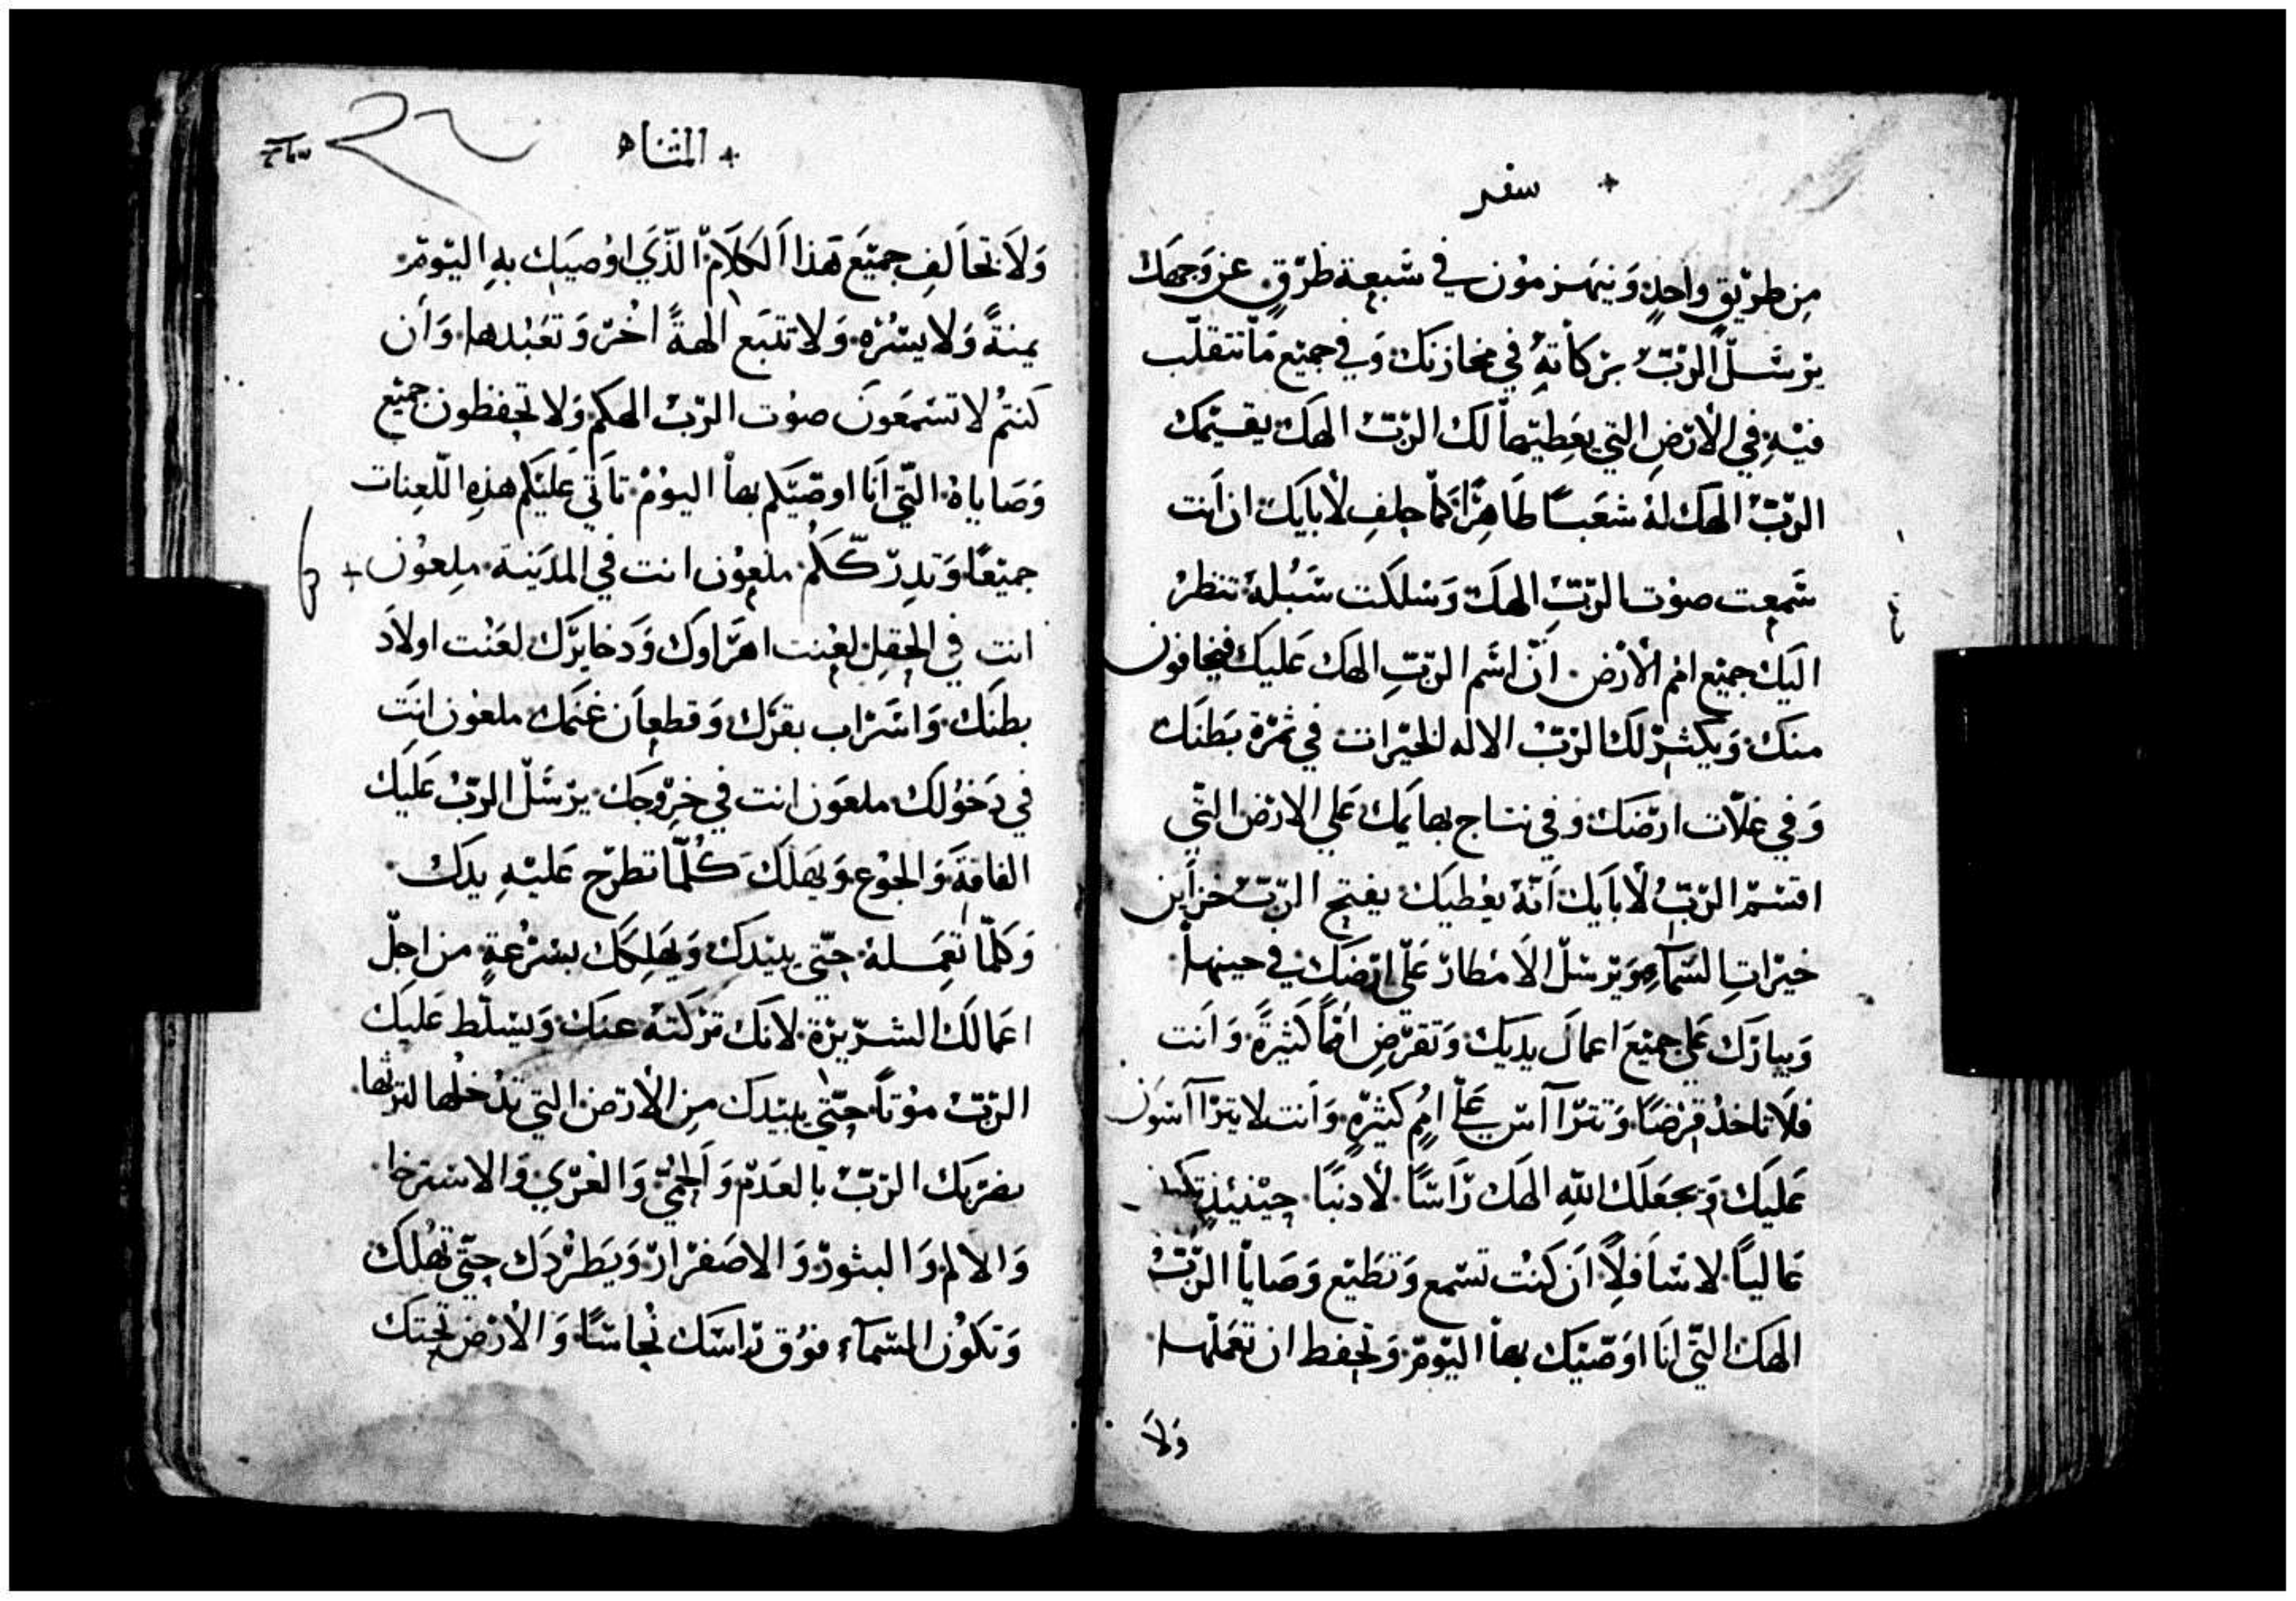 + سفر
مِن طرّيقٍ واحدٍ وَينهَزمُون في سَبعة طرّقٍ عن وَجهَك
يرْسَلّ الرّبّ برَكاتهِ في مخازنك وَفي جميْع مَا تتقلّب
فيْهِ في الارْضِ التي يعَطِيْها لَك الرّبّ الهَك يقيْمك
الربّ الهك لهُ شعَبًا طَاهرًا كمَّا حلِف لابايَك ان انت
سَمعت صوْت الرّبّ الهَك وَسَلكت سُبُلهُ تنظرُ
اليَك جميْع امْم الارْض انّ اسَم الرّبّ الهَك عَليك فيخافون
منَك وَيكثرّ لك الرّبّ الاله الخيْرات في ثمرّة بَطنَك
وَفي غلاّت ارّضَك وَفي نتاج بهايَمك عَلي الارْض التّي
اقسَم الرّبّ لابَايَك انّهُ يعْطيَك يفتح الرّبّ خزاين
خيْراتِ السَمآءِ وَيرْسَلّ الامْطار عَليّ ارْضَك في حينها
وَيبارَك عَلي جميْعَ اعمالَ يدَيك وَتقرّضِ امْمًا كَثيرةً وَانت
فلَا تاخذ قرْضًا وَتترَااس عَليّ امُمٍ كثيْرَهٍ وَانت لا يترَااسَون
عَليَك وَيجعَلَك اللّه الهَك رّاسًا لاَ دنبًا حيْنيئذٍ تكون
عَاليًا لا سَافلًا ان كنت تسْمع وَتطَيْع وَصَايا الرّبّ
الهَك التّي انَا اوَصّيْك بها اليَوْمّ وَتحفط ان تعَملّها
وَلَا
+ المثناه
وَلَا تخاَلفِ جميْعَ هَذا الكلَامّ الذّيَ اوْصيَك بهِ اليّومّ
يمنةً وَلا يسْرّه وَلا تتبَع الهةً اخُرّ وَتعَبْدها وَان
كنتُم لا تسْمعَونَ صوْت الرّبّ الهكم وَلا تحفظون جميْع
وَصَاياهُ التّي انَا اوصّيَكم بها اليوْمْ تاتَي عَليَكم هذِهِ اللّعنات
جميْعًا وَتدِرّكَكُم ملعوُن انت في المدَينة ملعوُن +
انت في الحقلِ لعِنت اهَرَاوك وَدخايرَّك لعَنْت اولَاد
بطنَك وَاسَرَاب بقرَك وَقطعاَن غَنَمك ملعوْن انَت
في دَخوْلك ملعَون انت في خرْوجَك يرْسَلّ الرّبّ عَليَك
الفاقةَ وَالجوْع وَيهَلَك كُلّمَا تطرّح عَليْهِ يدَك
وَكلّمَا تعَمله حتّي يبيْدَك وَيهَلكَك بسرْعةٍ من اجلّ
اعَمالَك الشرّيرّة لانَك ترَكَتهُ عنَك وَيسَلّط عَليَك
الرّبّ موْتًا حتّي يبيْدَك مِن الارْض التي تدْخلُها لترثْها
يضرّبَك الرّبّ بالعَدمّ وَالحمّي وَالعَرّي وَالاسترخا
وَالالم وَالبثورّ وَالاصَفرَارّ وَيَطَرْدَك حتّي تهُلك
وَتكوُن السَمآء فوْق رّاسَك نحُاسًا وَالارْض تحتَك